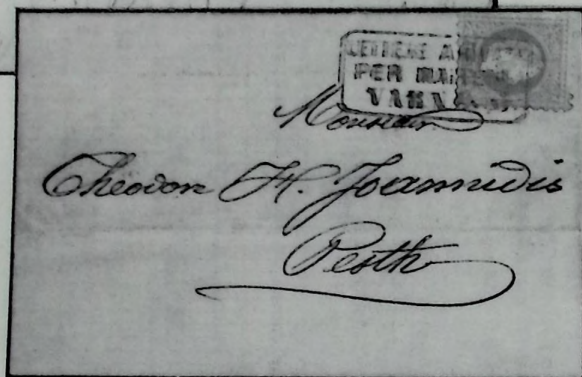 LETTERE A
PER MA
VARNA
Monsieur
Theodor H. Joannidis
Pesth